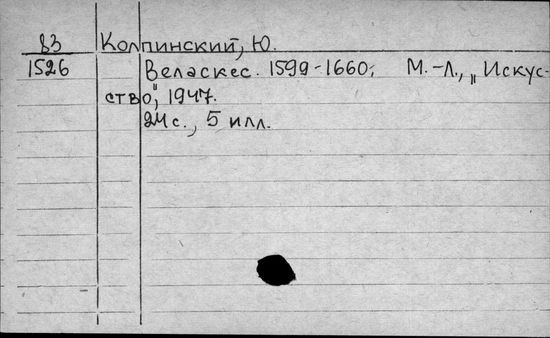 83 Колпинский, Ю.
1526 Веласкес. 1599-1660; М.-Л., „Искус-
ство", 1947.
24 с., 5 илл.